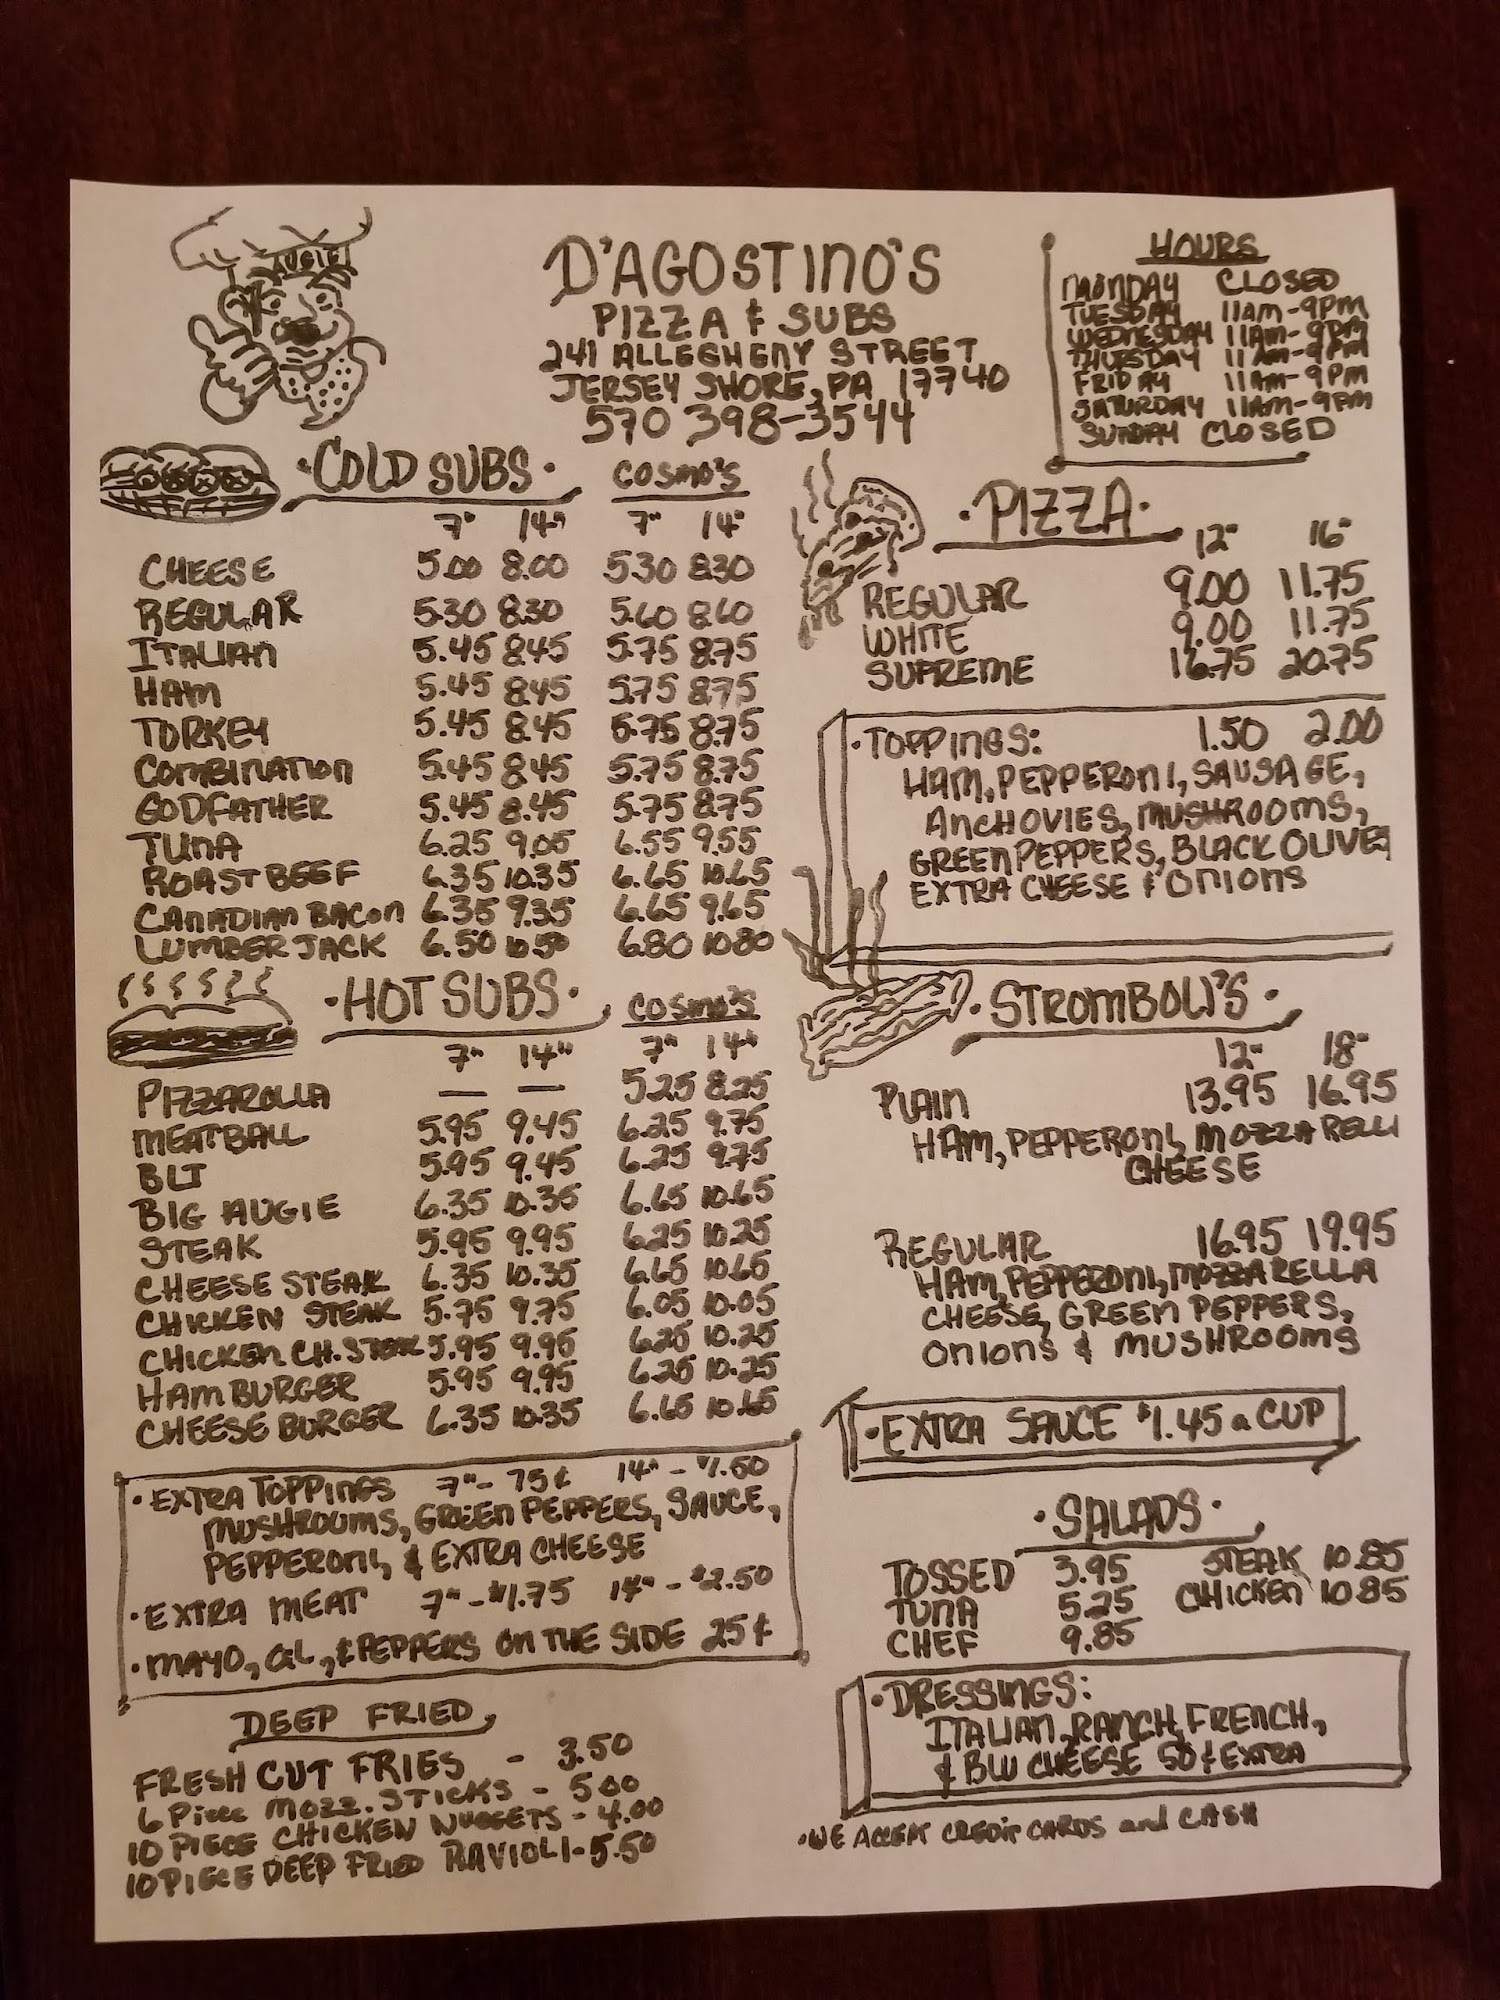 AUGIE
D'AGOSTINO'S
PIZZA & SUBS
241 ALLEGHENY STREET
JERSEY SHORE, PA 17740
570 398-3544
HOURS
MONDAY CLOSED
TUESDAY 11AM-9PM
WEDNESDAY 11AM-9PM
THURSDAY 11AM-9PM
FRIDAY 11AM-9PM
SATURDAY 11AM-9PM
SUNDAY CLOSED
·COLD SUBS· COSMO'S
7" 14" 7" 14"
CHEESE 5.00 8.00 5.30 8.30
REGULAR 5.30 8.30 5.60 8.60
ITALIAN 5.45 8.45 5.75 8.75
HAM 5.45 8.45 5.75 8.75
TORKEY 5.45 8.45 5.75 8.75
COMBINATION 5.45 8.45 5.75 8.75
GODFATHER 5.45 8.45 5.75 8.75
TUNA 6.25 9.05 6.55 9.55
ROAST BEEF 6.35 10.35 6.65 10.65
CANADIAN BACON 6.35 9.35 6.65 9.65
LUMBERJACK 6.50 10.50 6.80 10.80
·HOT SUBS· COSMO'S
7" 14" 7" 14"
PIZZAROLLA — — 5.25 8.25
MEATBALL 5.95 9.45 6.25 9.75
BLT 5.95 9.45 6.25 9.75
BIG AUGIE 6.35 10.35 6.65 10.65
STEAK 5.95 9.95 6.25 10.25
CHEESE STEAK 6.35 10.35 6.65 10.65
CHICKEN STEAK 5.75 9.75 6.05 10.05
CHICKEN CH. STEAK 5.95 9.95 6.25 10.25
HAMBURGER 5.95 9.95 6.25 10.25
CHEESE BURGER 6.35 10.35 6.65 10.65
·EXTRA TOPPINGS 7"- 75¢ 14" - $1.50
MUSHROOMS, GREEN PEPPERS, SAUCE,
PEPPERONI, & EXTRA CHEESE
·EXTRA MEAT 7" - $1.75 14" - $2.50
·MAYO, OIL, & PEPPERS ON THE SIDE 25¢
DEEP FRIED
FRESH CUT FRIES - 3.50
6 PIECE MOZZ. STICKS - 5.00
10 PIECE CHICKEN NUGGETS - 4.00
10 PIECE DEEP FRIED RAVIOLI - 5.50
·PIZZA·
12" 16"
REGULAR 9.00 11.75
WHITE 9.00 11.75
SUPREME 16.75 20.75
·TOPPINGS: 1.50 2.00
HAM, PEPPERONI, SAUSAGE,
ANCHOVIES, MUSHROOMS,
GREEN PEPPERS, BLACK OLIVES
EXTRA CHEESE & ONIONS
·STROMBOLI'S·
12" 18"
PLAIN 13.95 16.95
HAM, PEPPERONI, MOZZARELLI
CHEESE
REGULAR 16.95 19.95
HAM, PEPPERONI, MOZZARELLA
CHEESE, GREEN PEPPERS,
ONIONS & MUSHROOMS
·EXTRA SAUCE $1.45 a CUP
·SALADS·
TOSSED 3.95 STEAK 10.85
TUNA 5.25 CHICKEN 10.85
CHEF 9.85
·DRESSINGS:
ITALIAN, RANCH, FRENCH,
& BLU CHEESE 50¢ EXTRA
·WE ACCEPT CREDIT CARDS and CASH